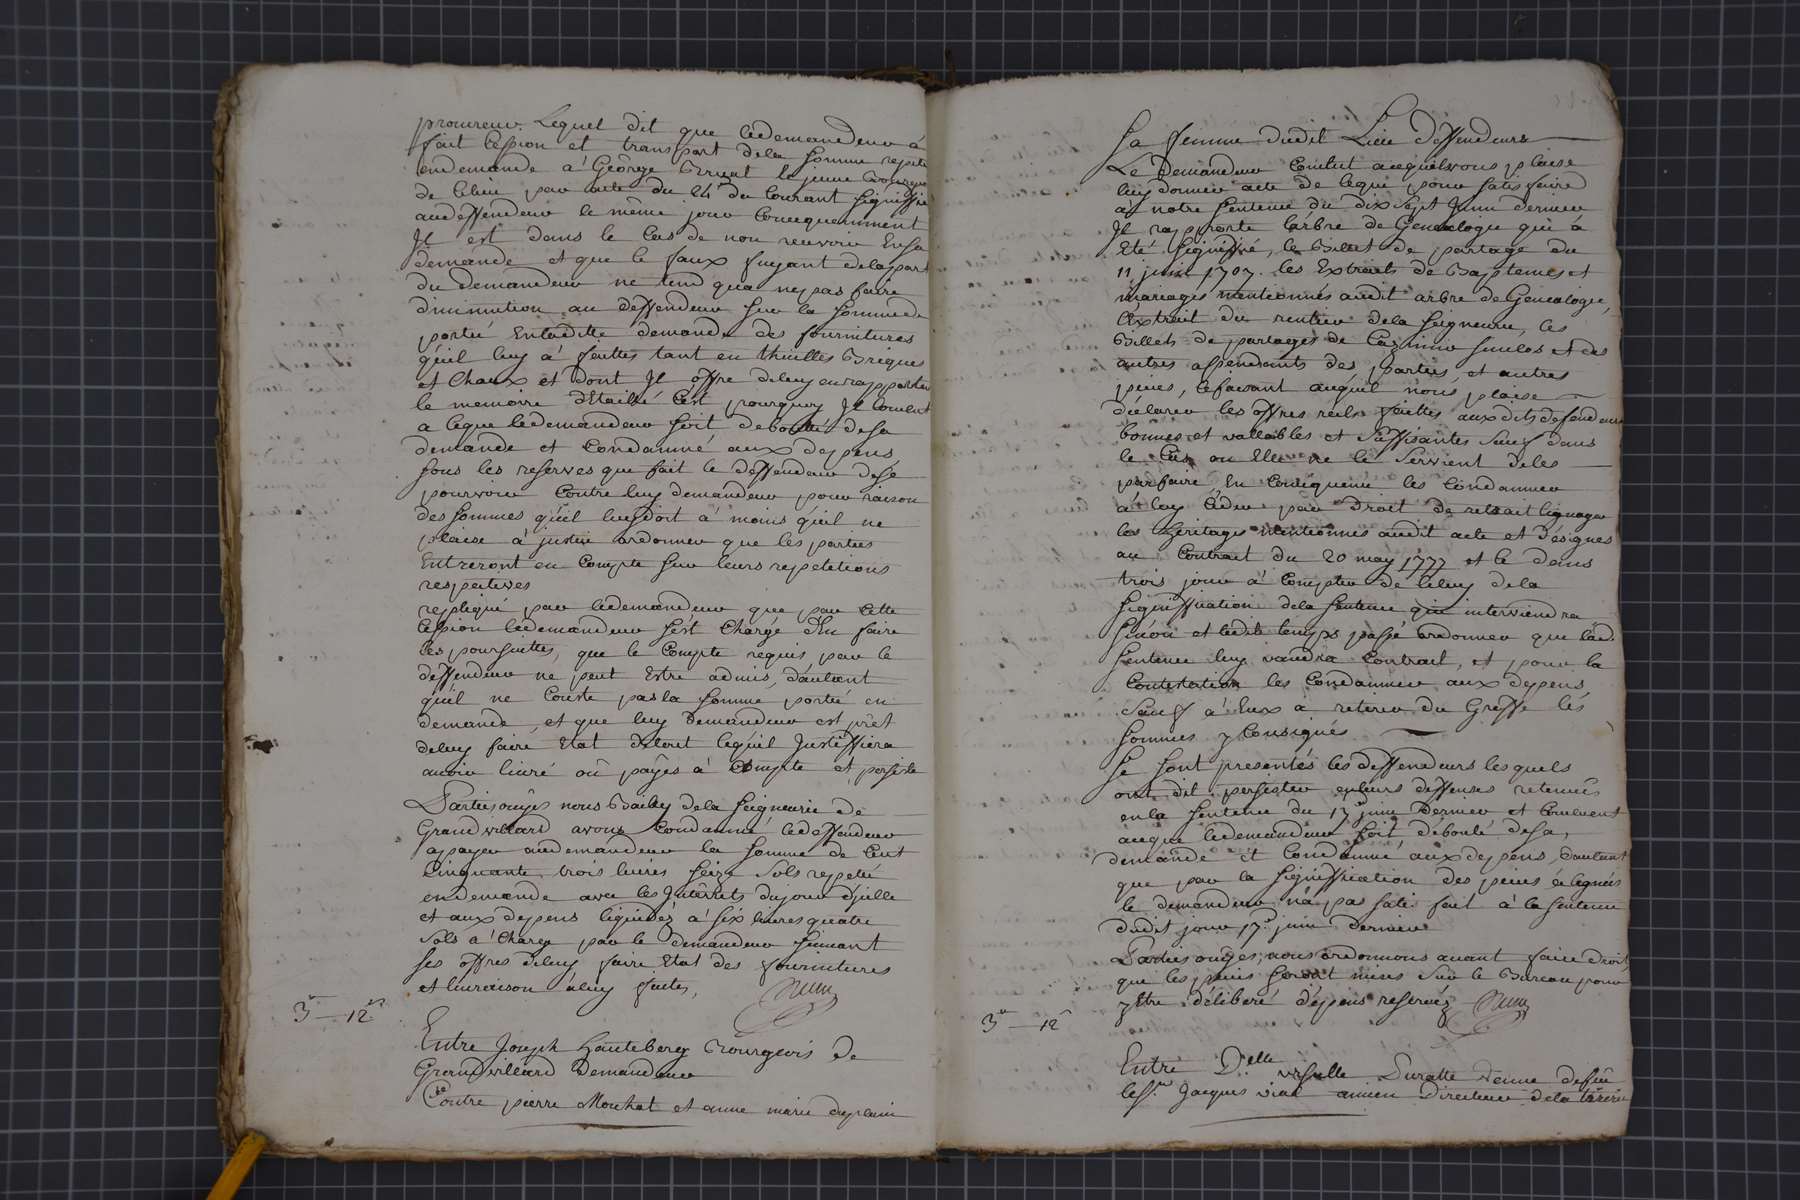 procureur. Lequel dit que ledemandeur à
fait Cession et transport dela somme repetée
endemande à George Bruat le jeune bourgeois
de lieu par acte du 24 du Courant signiffié
audeffendeur le même jour Consequemment
Il est dans le Cas de non recevoir Ensa
demande et que le faux fuyant delapart
du demandeur ne tend qua ne pas faire
diminution au deffendeur sur la somme de
portée Enladitte demande des fournitures
quil luy à faittes tant en thuilles Briques
et Chaux et dont Il offre deluy enrapporter
le memoire détaillé C'est pourquoy Il Conclut
a ceque ledemandeur soit debouté desa
demande et Condamné aux depens
sous les reserves que fait le deffendeur dese
pourvoir Contre luy demandeur pour raison
des sommes qu'il luy doit à moins qu'il ne
plaise à justice ordonner que les parties
Entreront en Compte sur leurs repetitions
respectives
repliqué par ledemandeur que par Cette
Cession ledemandeur s'est Chargé d'En faire
les poursuittes, que le Compte requis par le
deffendeur ne peut Estre admis, dautant
qu'il ne Conste pas la somme portée en
demande, et que luy demandeur est prêt
deluy faire Etat detout lequil Justiffiera
avoir livré où payés à Compte et persiste
Parties ouyes nous Bailly dela seigneurie de
Grandvillard avons Condamné ledeffendeur
apayer audemandeur la somme de Cent
Cinquante trois livres seize sols repetée
endemande avec les Interrets dujour d'jcelle
et aux depens liquidez à six livres quatre
sols à Charge par le demandeur suivant
ses offres deluy faire Etat des fournitures
et livraison àluy faites,
3 — 12
Entre Joseph Hanteberg Bourgeois de
Grandvillard demandeur
Contre pierre Mouhat et anne marie duplain
sa femme dudit Lieu deffendeurs
Le demandeur Conclut acequil vous plaise
luy donner acte de ceque pour satisfaire
à notre sentence du dix sept Juin dernier
Il rapporte l'arbre de Genealogie qui à
Eté signiffié, le Billet de partage du
11 juin 1707. les Extraits de Baptemes et
mariages mentionnés audit arbre de Genealogie,
l'Extrait du rentier dela seigneurie, les
Billets de partages de et des
autres appendants des parties et autres
pieces, Cefaisant acequil vous plaise
déclarer les offres reels faittes auxdits defendeurs
bonnes et vallables et suffisantes sauf dans
le Cas ou Elle ne le servient deles
parfaire En Consequence les Condamner
à luy Céder par droit de retrait lignager
les heritages mentionnés audit acte et désignés
au Contrat du 20 may 1777 et ce dans
trois jours à Compter de Celuy dela
signiffication dela sentence qui interviendra
sinon et ledit temps passé ordonner que lad.
sentence luy vaudra Contract, et pour la
Contestation les Condamner aux depens
sauf à Eux à retirer du Greffe les
sommes y Consignés
se sont presentés les deffendeurs lesquels
ont dit persister enleurs deffenses retenues
enla sentence du 17 juin dernier et Concluent
aceque ledemandeur soit débouté desa,
demande et Condamné aux depens, dautant
que par la signiffication des pieces
le demandeur n'à pas satisfait à la sentence
dudit jour 17 juin dernier
Parties ouÿes, nous ordonnons avant faire droit,
que les pieces seront mises sur le Bureau pour
y Etre déliberé dépens reservéz
3 — 12
Entre D.elle Ursulle Duratte veuve defeu
le s.r Jacques viat ancien Directeur dela